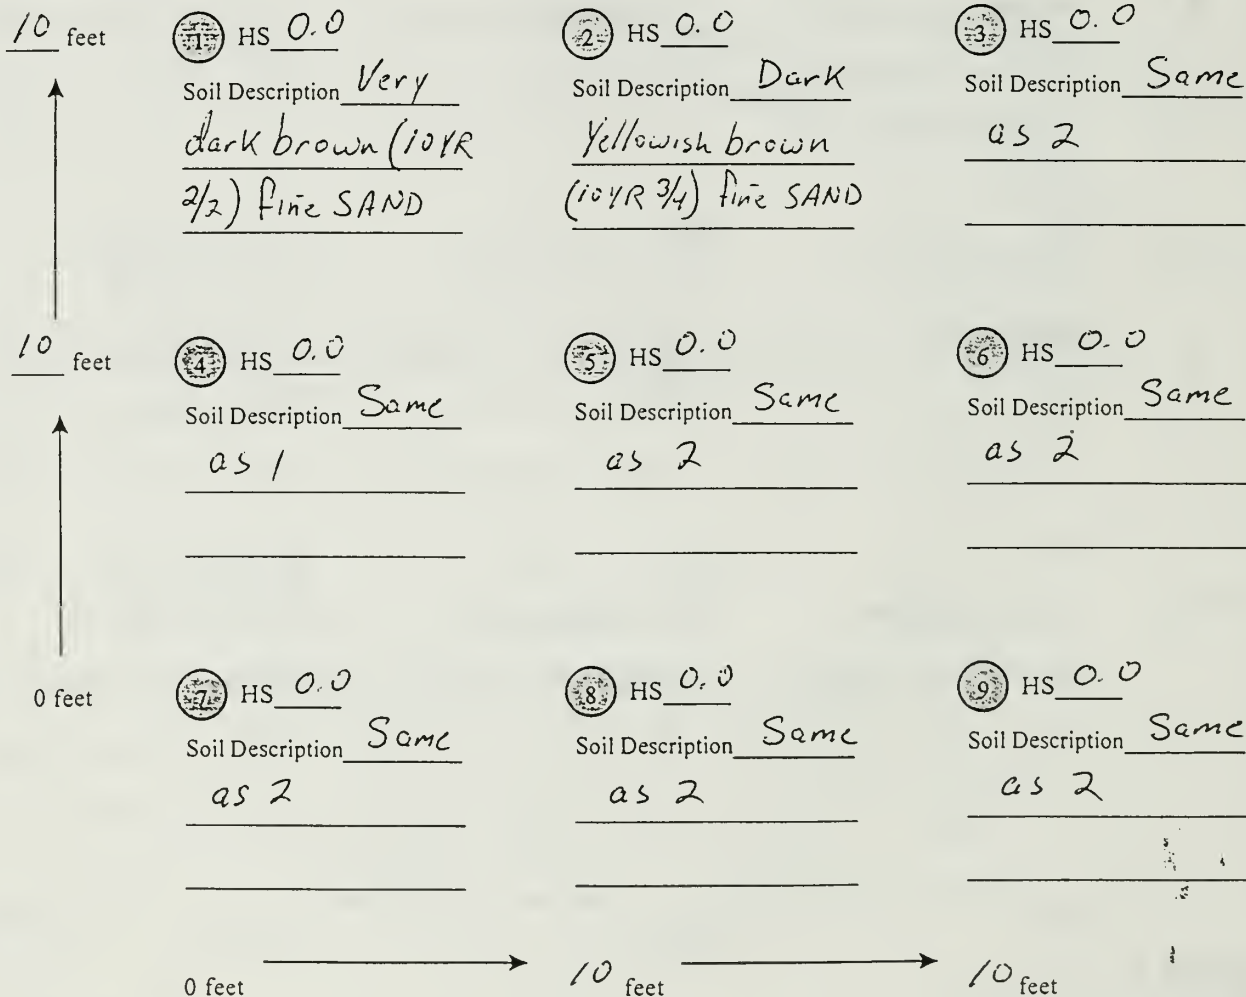 10 feet
1 HS 0.0
Soil Description Very
dark brown (10YR
2/2) fine SAND
2 HS 0.0
Soil Description Dark
Yellowish brown
(10YR 3/4) fine SAND
3 HS 0.0
Soil Description Same
as 2
10 feet
4 HS 0.0
Soil Description Same
as 1
5 HS 0.0
Soil Description Same
as 2
6 HS 0.0
Soil Description Same
as 2
0 feet
7 HS 0.0
Soil Description Same
as 2
8 HS 0.0
Soil Description Same
as 2
9 HS 0.0
Soil Description Same
as 2
0 feet
10 feet
10 feet